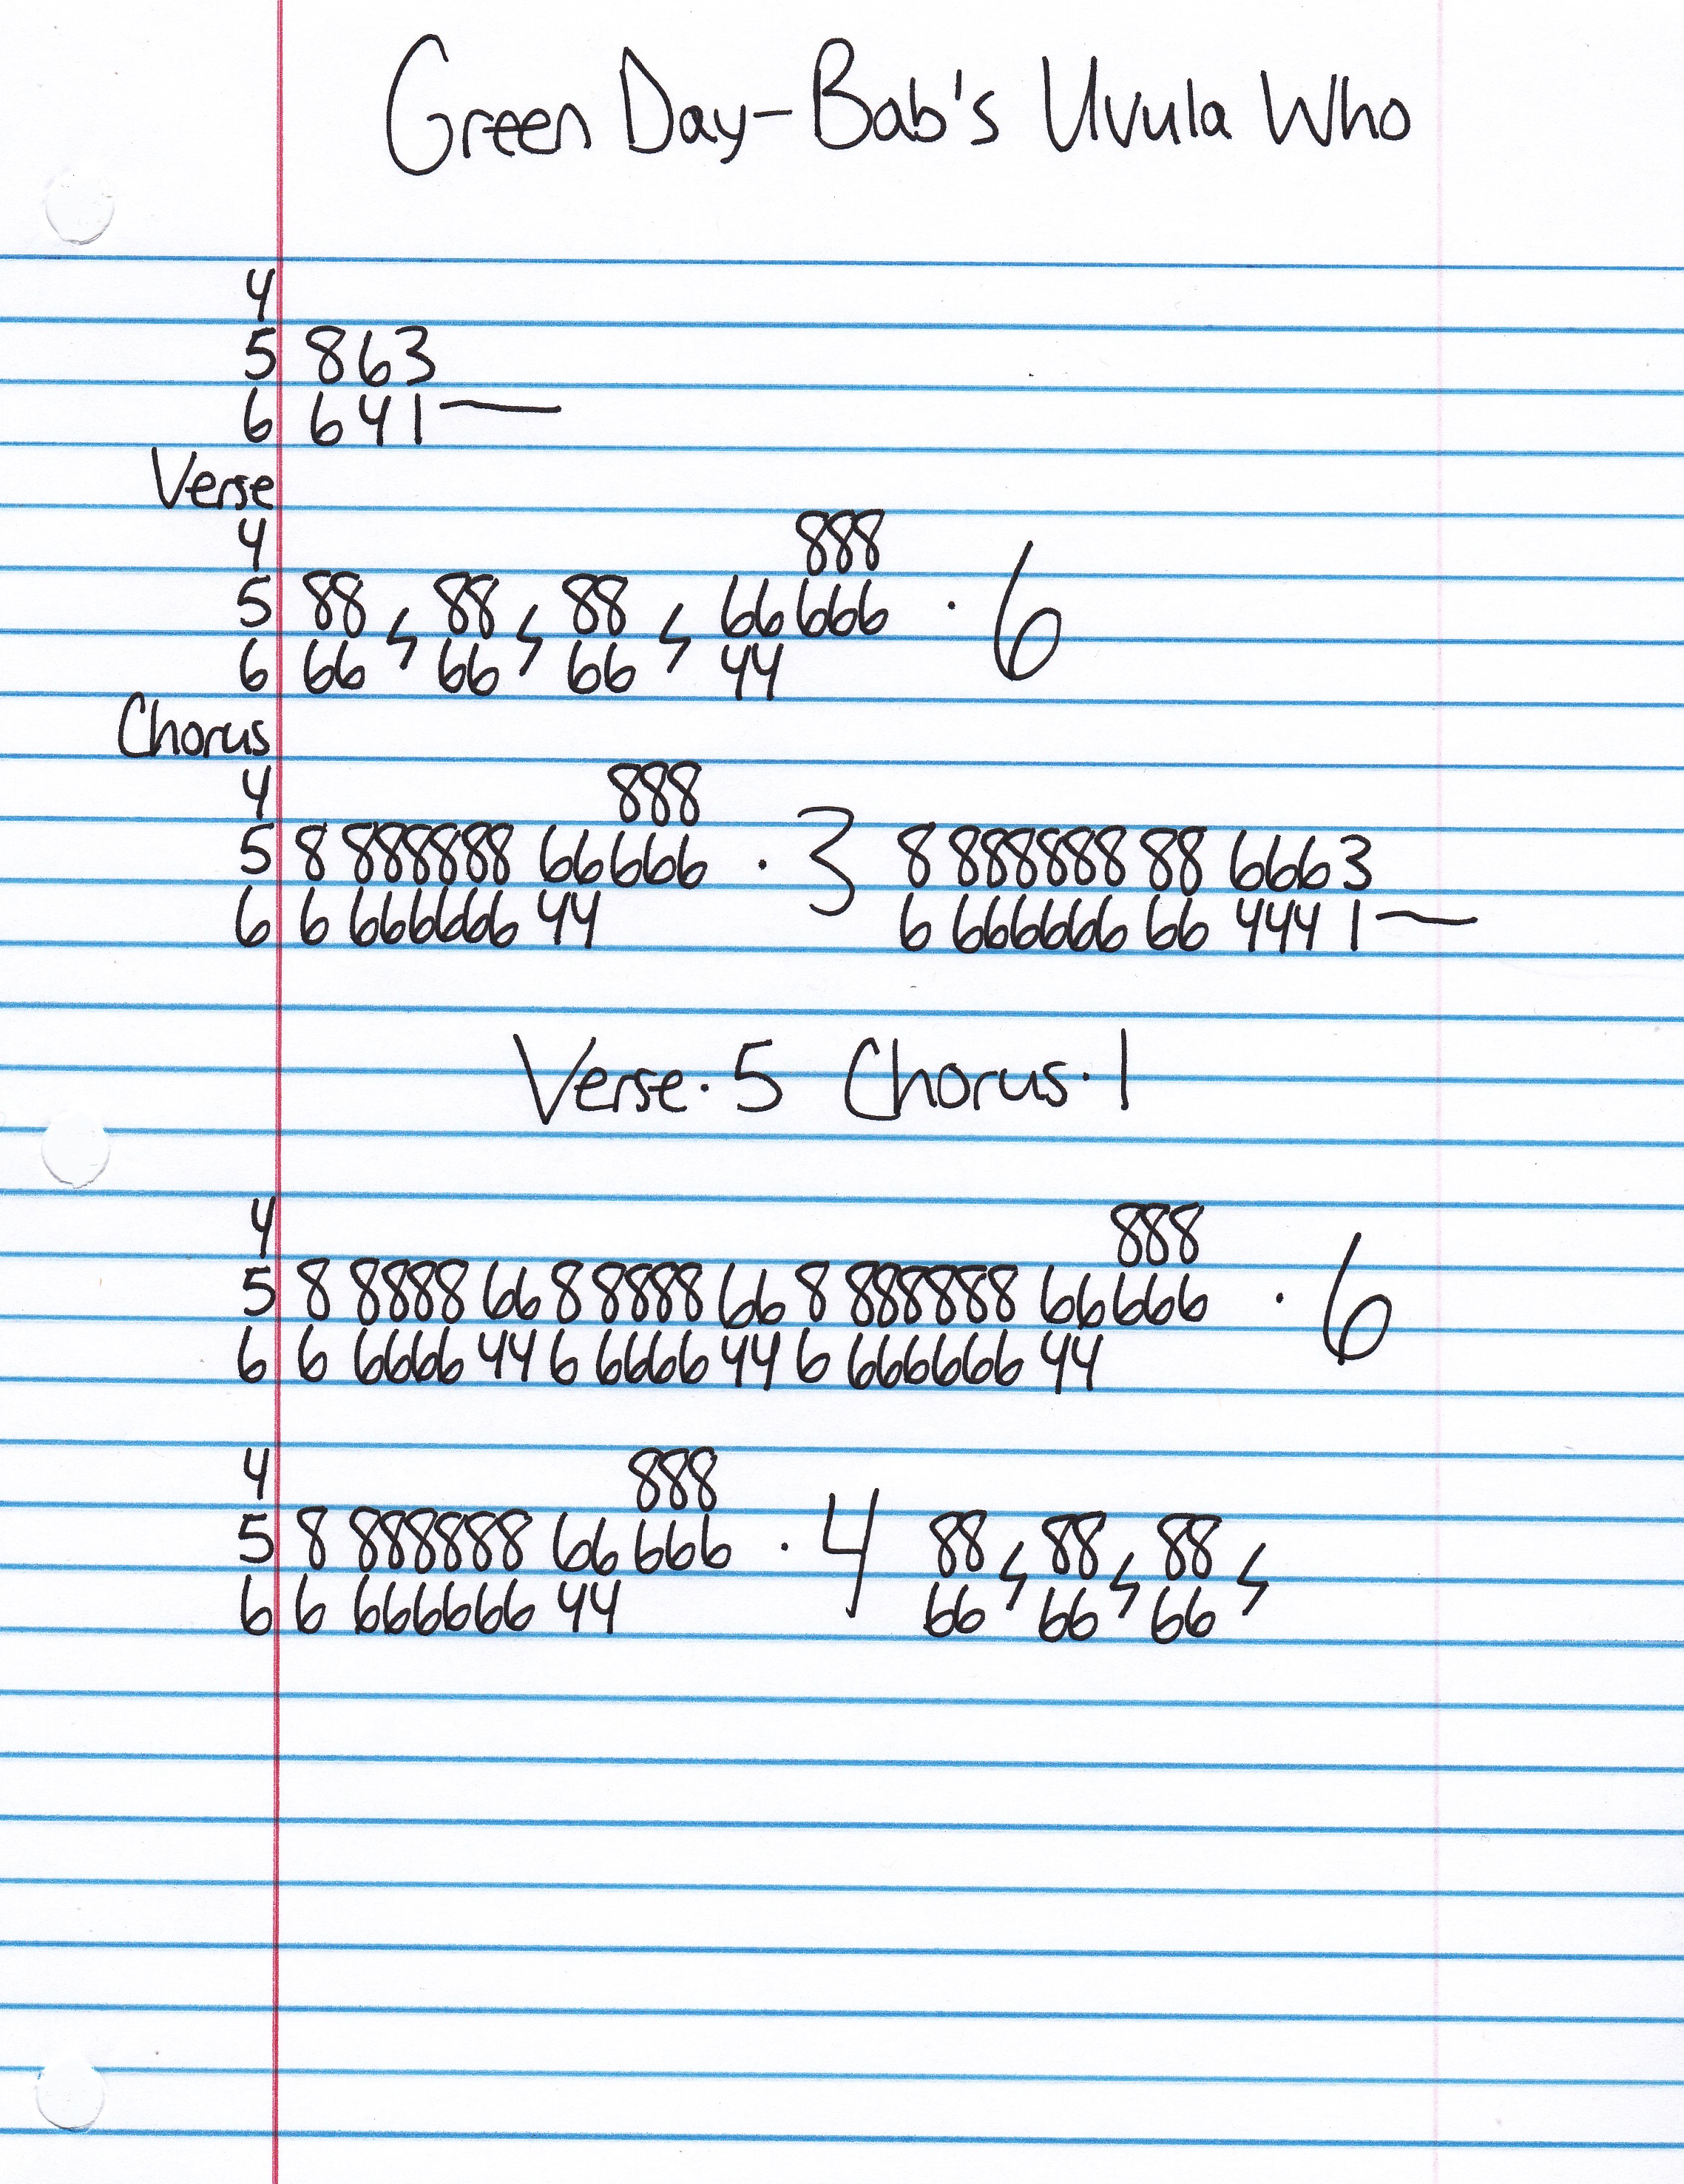 Green Day-Bab's Uvula Who
4
5 863
6 641—
Verse
4 888
5 88 , 88 , 88 , 66 666 · 6
6 66 66 66 44
Chorus
4 888
5 8 888888 66666 · 3 8 888888 88 6663
6 6 666666 44 6 666666 66 444 1—
Verse·5 Chorus·1
4 888
5 8 8888 66 8 8888 66 8 888888 66666 · 6
6 6 6666 44 6 6666 44 6 666666 44
4 888
5 8 888888 66 666 · 4 88 , 88 , 88 ,
6 6 666666 44 66 66 66